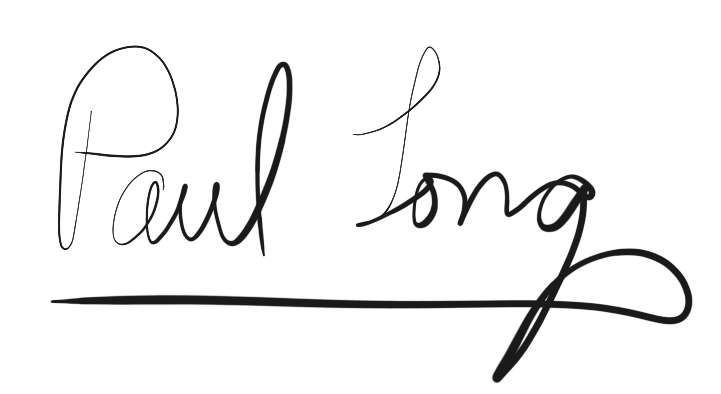 Paul Long